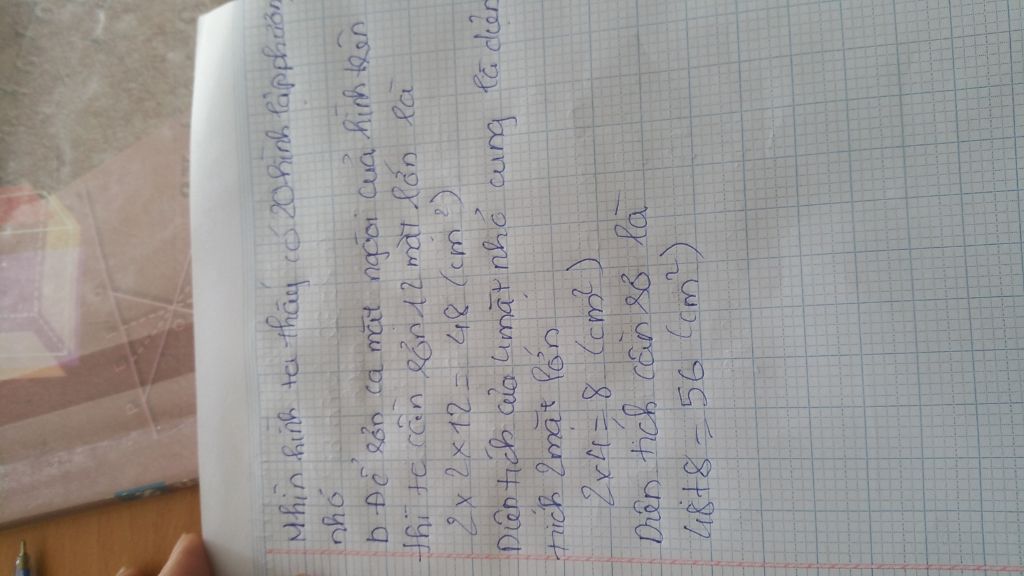 Nhìn hình ta thấy có 20 hình lập phương
nhỏ
b Để sơn cả mặt ngoài của hình bên
thì ta cần sơn 12 mặt lớn là
2 x 2 x 12 = 48 (cm²)
Diện tích của 4 mặt nhỏ cung là diện
tích 2 mặt lớn
2 x 4 = 8 (cm²)
Diện tích cần sơ là
48 + 8 = 56 (cm²)